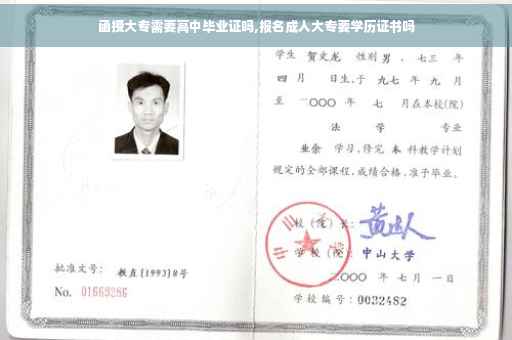 函授大专需要高中毕业证吗,报名成人大专要学历证书吗
学生 贺文龙 性别 男、七三 年
四 月 日生,于 九七 年 九 月
至 二000 年 七 月在本校(院)
法 学 专业
业余 学习,修完 本 科教学计划
规定的全部课程,成绩合格,准予毕业。
校（院）长:
学 校（院）: 中山大学
二000 年 七 月 一 日
学校编号: 0032482
批准文号: 教直[1993]8号
No. 01669286